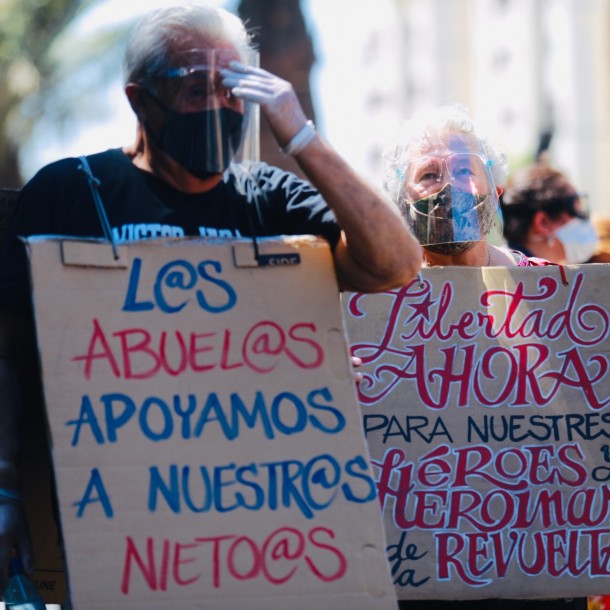 VICTOR JARA
L@S
ABUEL@S
APOYAMOS
A NUESTR@S
NIETO@S
Libertad
AHORA
PARA NUESTRES
HÉROES y
HEROINAS
de la REVUELTA